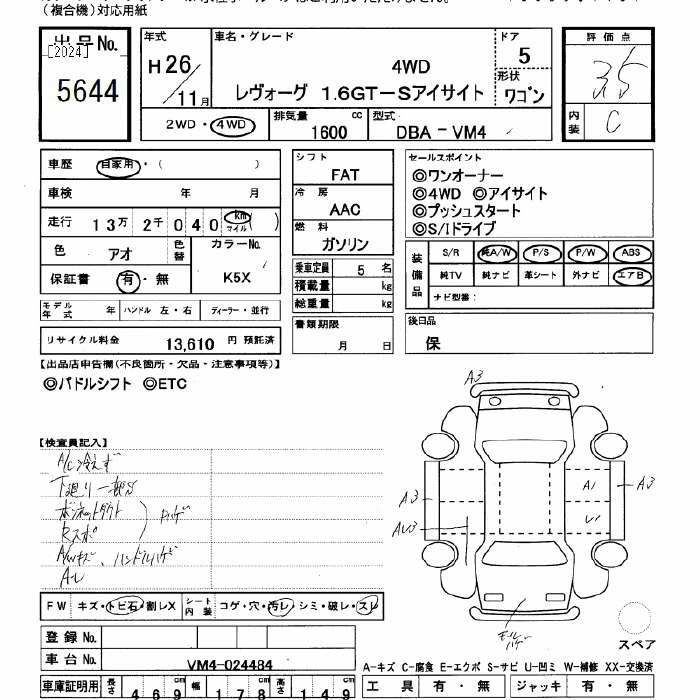 (複合機)対応用紙
出品No.
[2024]
5644
年式
H26/11月
車名・グレード
4WD
レヴォーグ 1.6GT-Sアイサイト
ドア
5
形状
ワゴン
2WD・4WD
排気量
1600 cc
型式
DBA-VM4
評価点
3.5
内装
C
車歴 自家用・( )
車検 年 月
走行 13万 2千 040 km マイル ( )
色 アオ
色替
カラーNo.
K5X
保証書 有・無
シフト
FAT
冷房
AAC
燃料
ガソリン
乗車定員 5 名
積載量 kg
総重量 kg
セールスポイント
◎ワンオーナー
◎4WD ◎アイサイト
◎プッシュスタート
◎S/Iドライブ
装備品
S/R 純A/W P/S P/W ABS
純TV 純ナビ 革シート 外ナビ エアB
ナビ型番:
モデル年式 年 ハンドル 左・右 ディーラー・並行
リサイクル料金 13,610 円 預託済
書類期限
月 日
後日品
保
【出品店申告欄(不良箇所・欠品・注意事項等)】
◎パドルシフト ◎ETC
【検査員記入】
A/C冷えず
下廻り一部サ
ボンネットダクト
Rスポ
ハゲ
A/Wキズ、ハンドルハゲ
A3
A3
A1
A3
U1
FW キズ・トビ石・割レX
シート内装 コゲ・穴・汚レ・シミ・破レ・スレ
登録No.
車台No. VM4-024484
スペア
A-キズ C-腐食 E-エクボ S-サビ U-凹ミ W-補修 XX-交換済
車庫証明用 長さ 469cm 幅 178cm 高さ 149cm
工具 有・無 ジャッキ 有・無